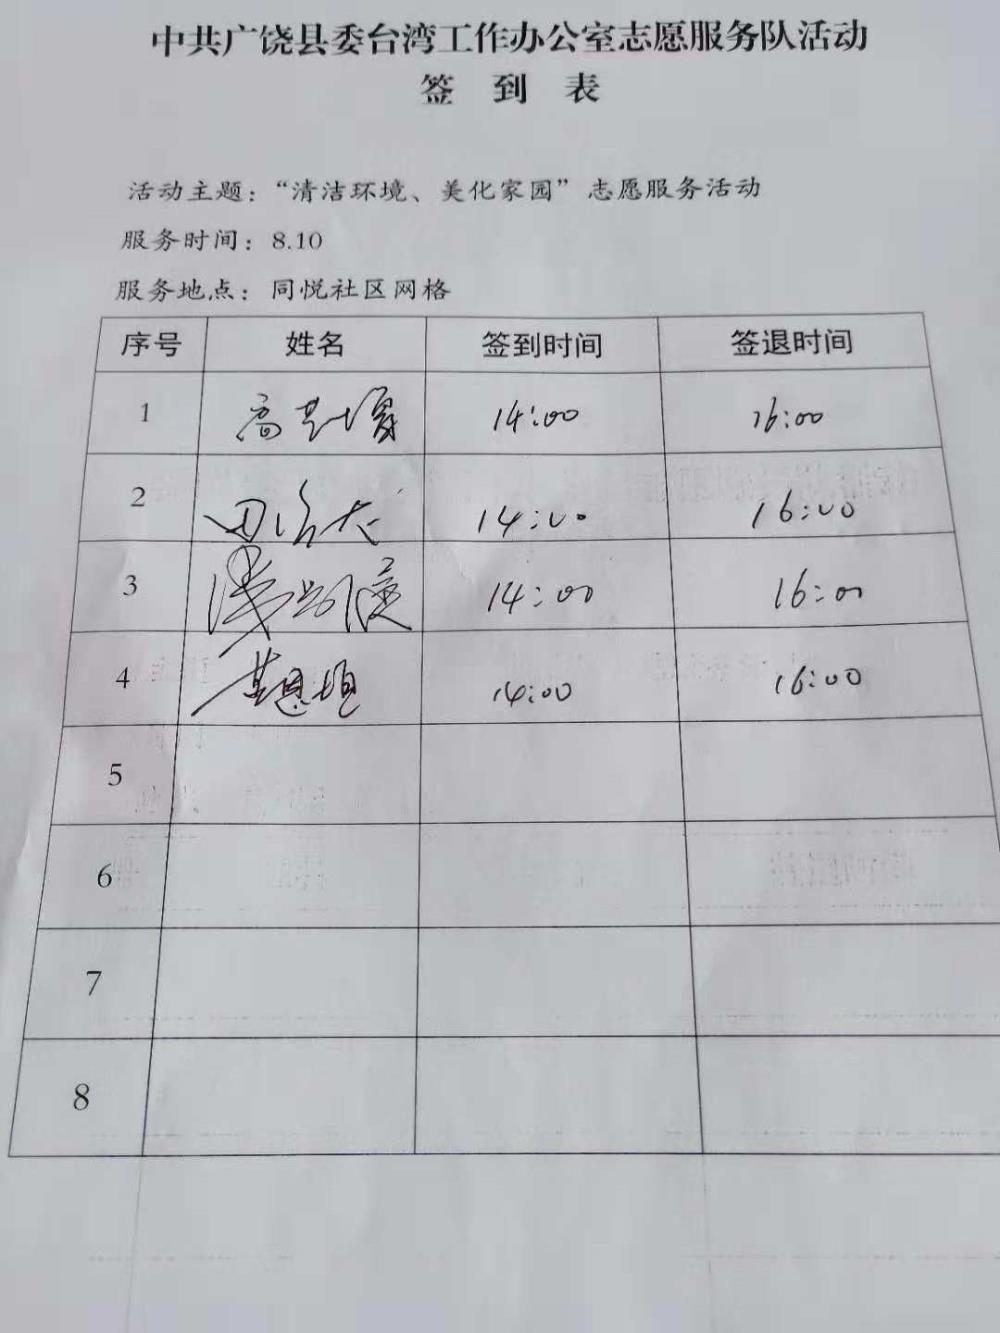 中共广饶县委台湾工作办公室志愿服务队活动
签 到 表
活动主题：“清洁环境、美化家园”志愿服务活动
服务时间：8.10
服务地点：同悦社区网格
序号 姓名 签到时间 签退时间
1 14:00 16:00
2 14:00 16:00
3 14:00 16:00
4 14:00 16:00
5
6
7
8